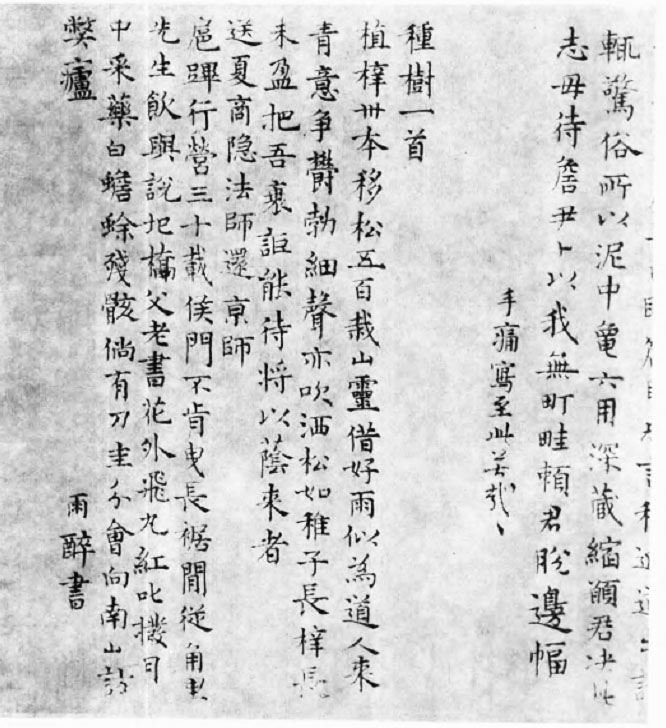 輒驚俗所以泥中龜六用深藏縮願君決此
志毋待詹尹卜以我無町畦賴君脫邊幅
手痛寫至此苦哉〻
種樹一首
植梓卅本移松五百栽山靈借好雨似為道人來
青意爭欝勃細聲亦吹洒松如稚子長梓長
未盈把吾衰詎能待將以蔭來者
送夏商隐法師還京師
扈蹕行營三十載侯門不肯曳長裾閒從角里
先生飲與說圯橋父老書花外飛丸紅叱撥月
中采藥白蟾蜍殘骸倘有刀圭分會向南山訪
弊廬
雨醉書